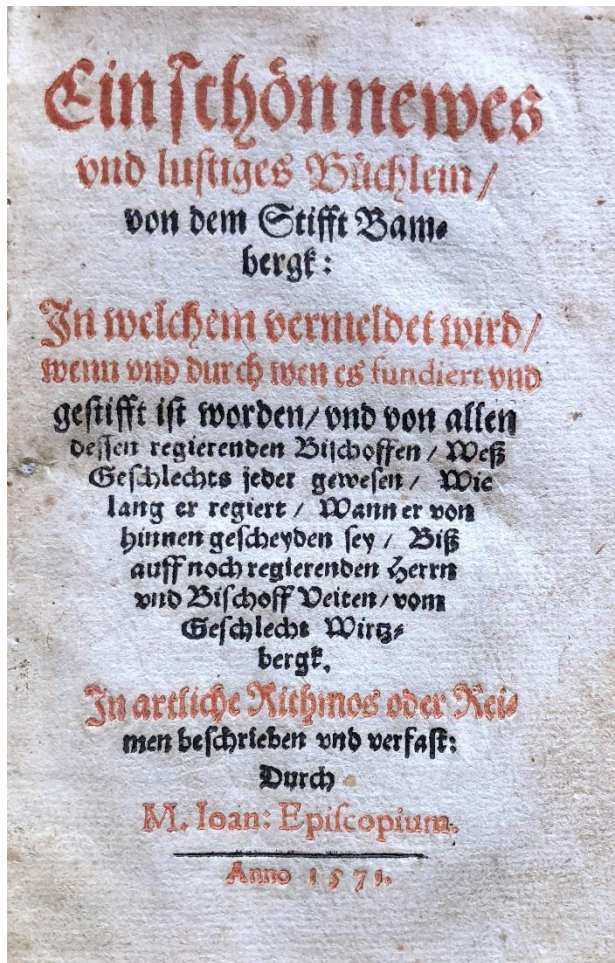 Ein schön newes
vnd lustiges Büchlein /
von dem Stifft Bam⸗
bergk:
In welchem vermeldet wird /
wenn vnd durch wen es fundiert vnd
gestifft ist worden / vnd von allen
dessen regierenden Bischoffen / Weß
Geschlechts jeder gewesen / Wie
lang er regiert / Wann er von
hinnen gescheyden sey / Biß
auff noch regierenden Herrn
vnd Bischoff Veiten / vom
Geschlecht Wirtz⸗
bergk.
In artliche Rithmos oder Rei⸗
men beschrieben vnd verfast:
Durch
M. Ioan: Episcopium.
Anno 1571.